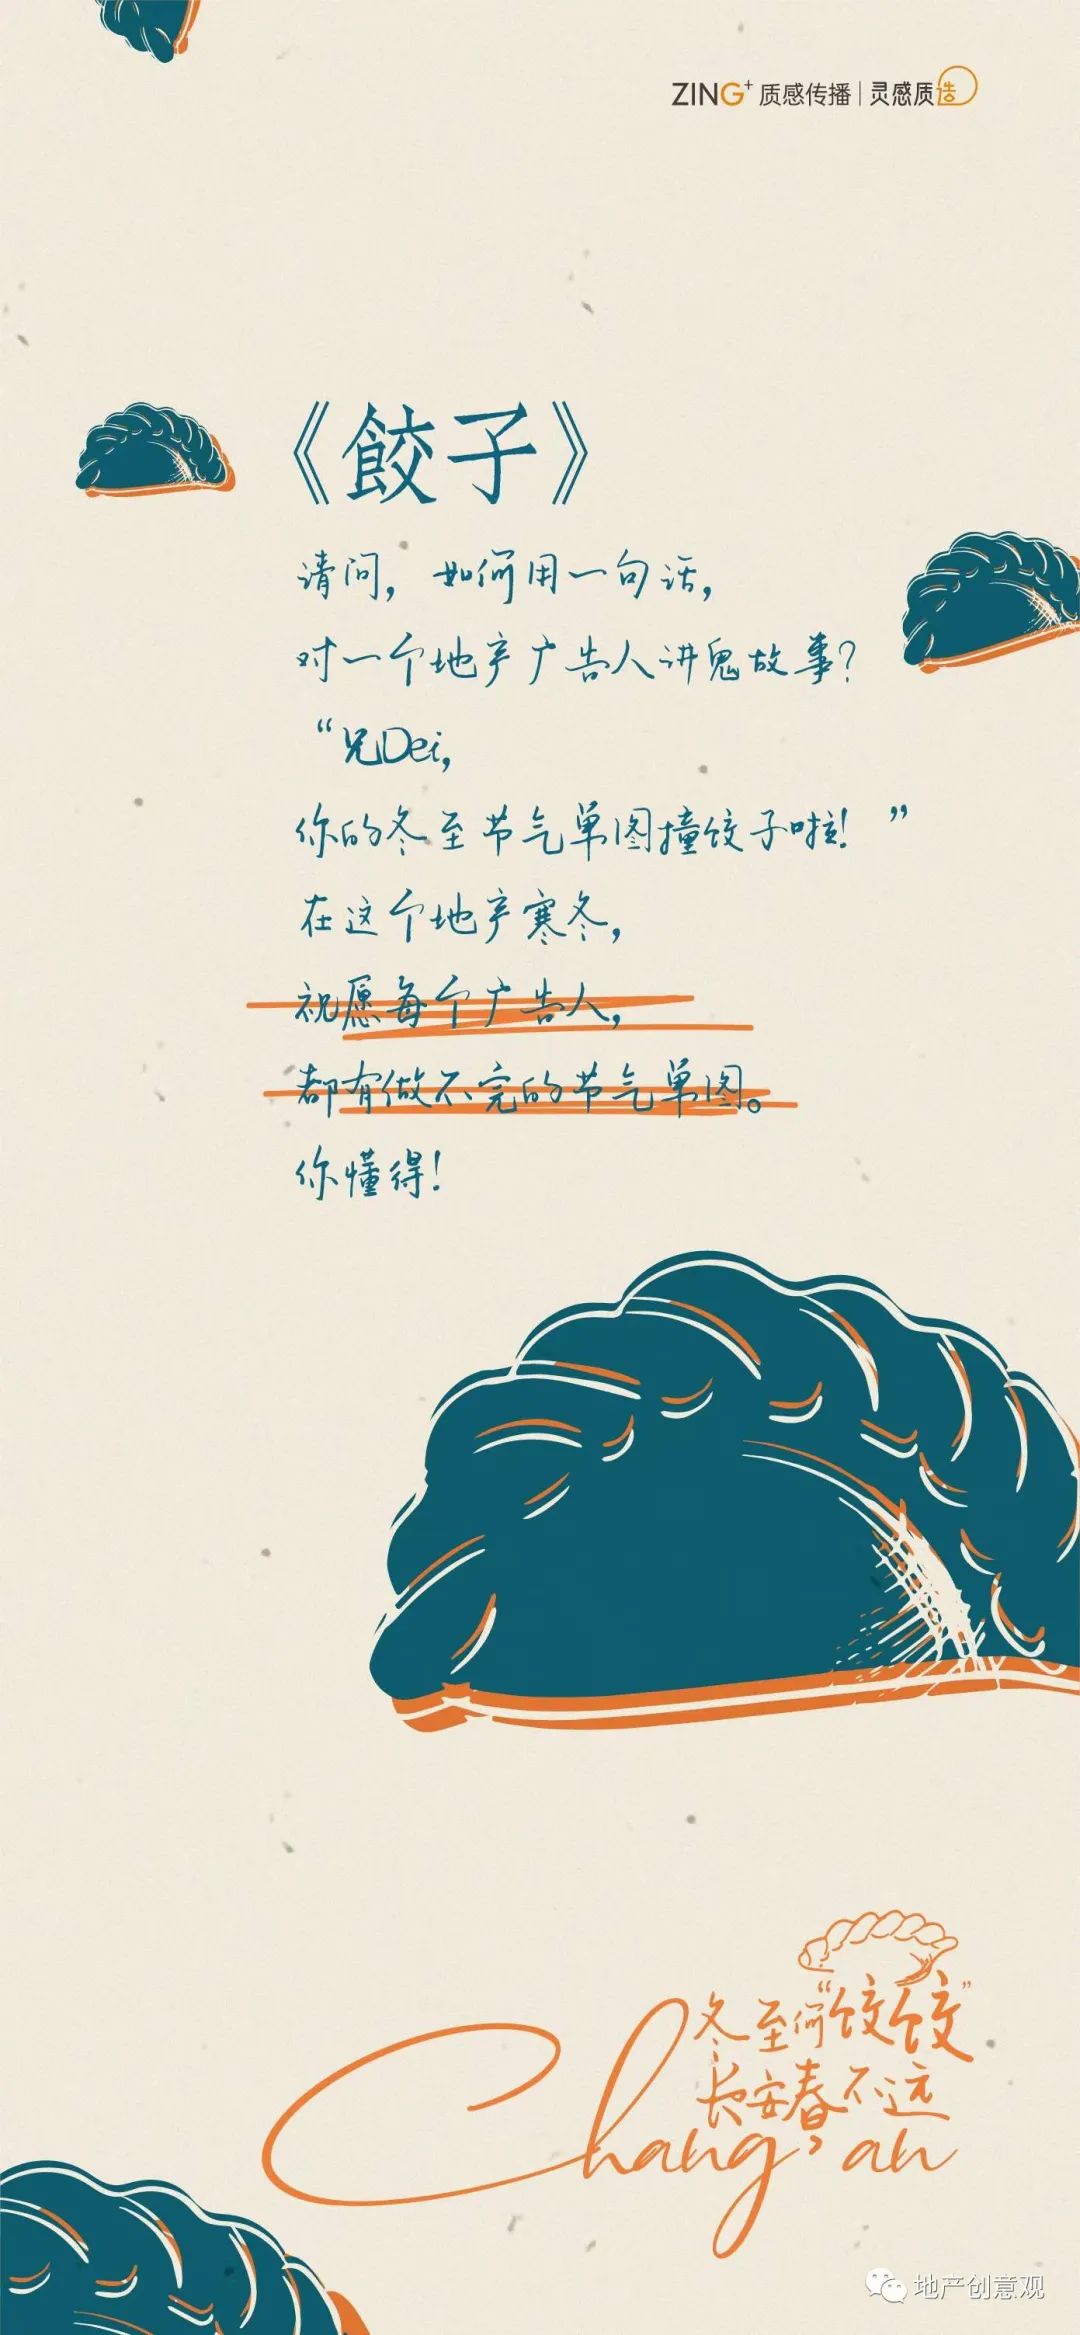 ZING+ 质感传播|灵感质造
《餃子》
请问，如何用一句话，
对一个地产广告人讲鬼故事？
“兄Dei，
你的冬至节气单图撞饺子啦！”
在这个地产寒冬，
祝愿每个广告人，
都有做不完的节气单图。
你懂得！
冬至何“饺饺”
长安春不远
Chang'an
地产创意观